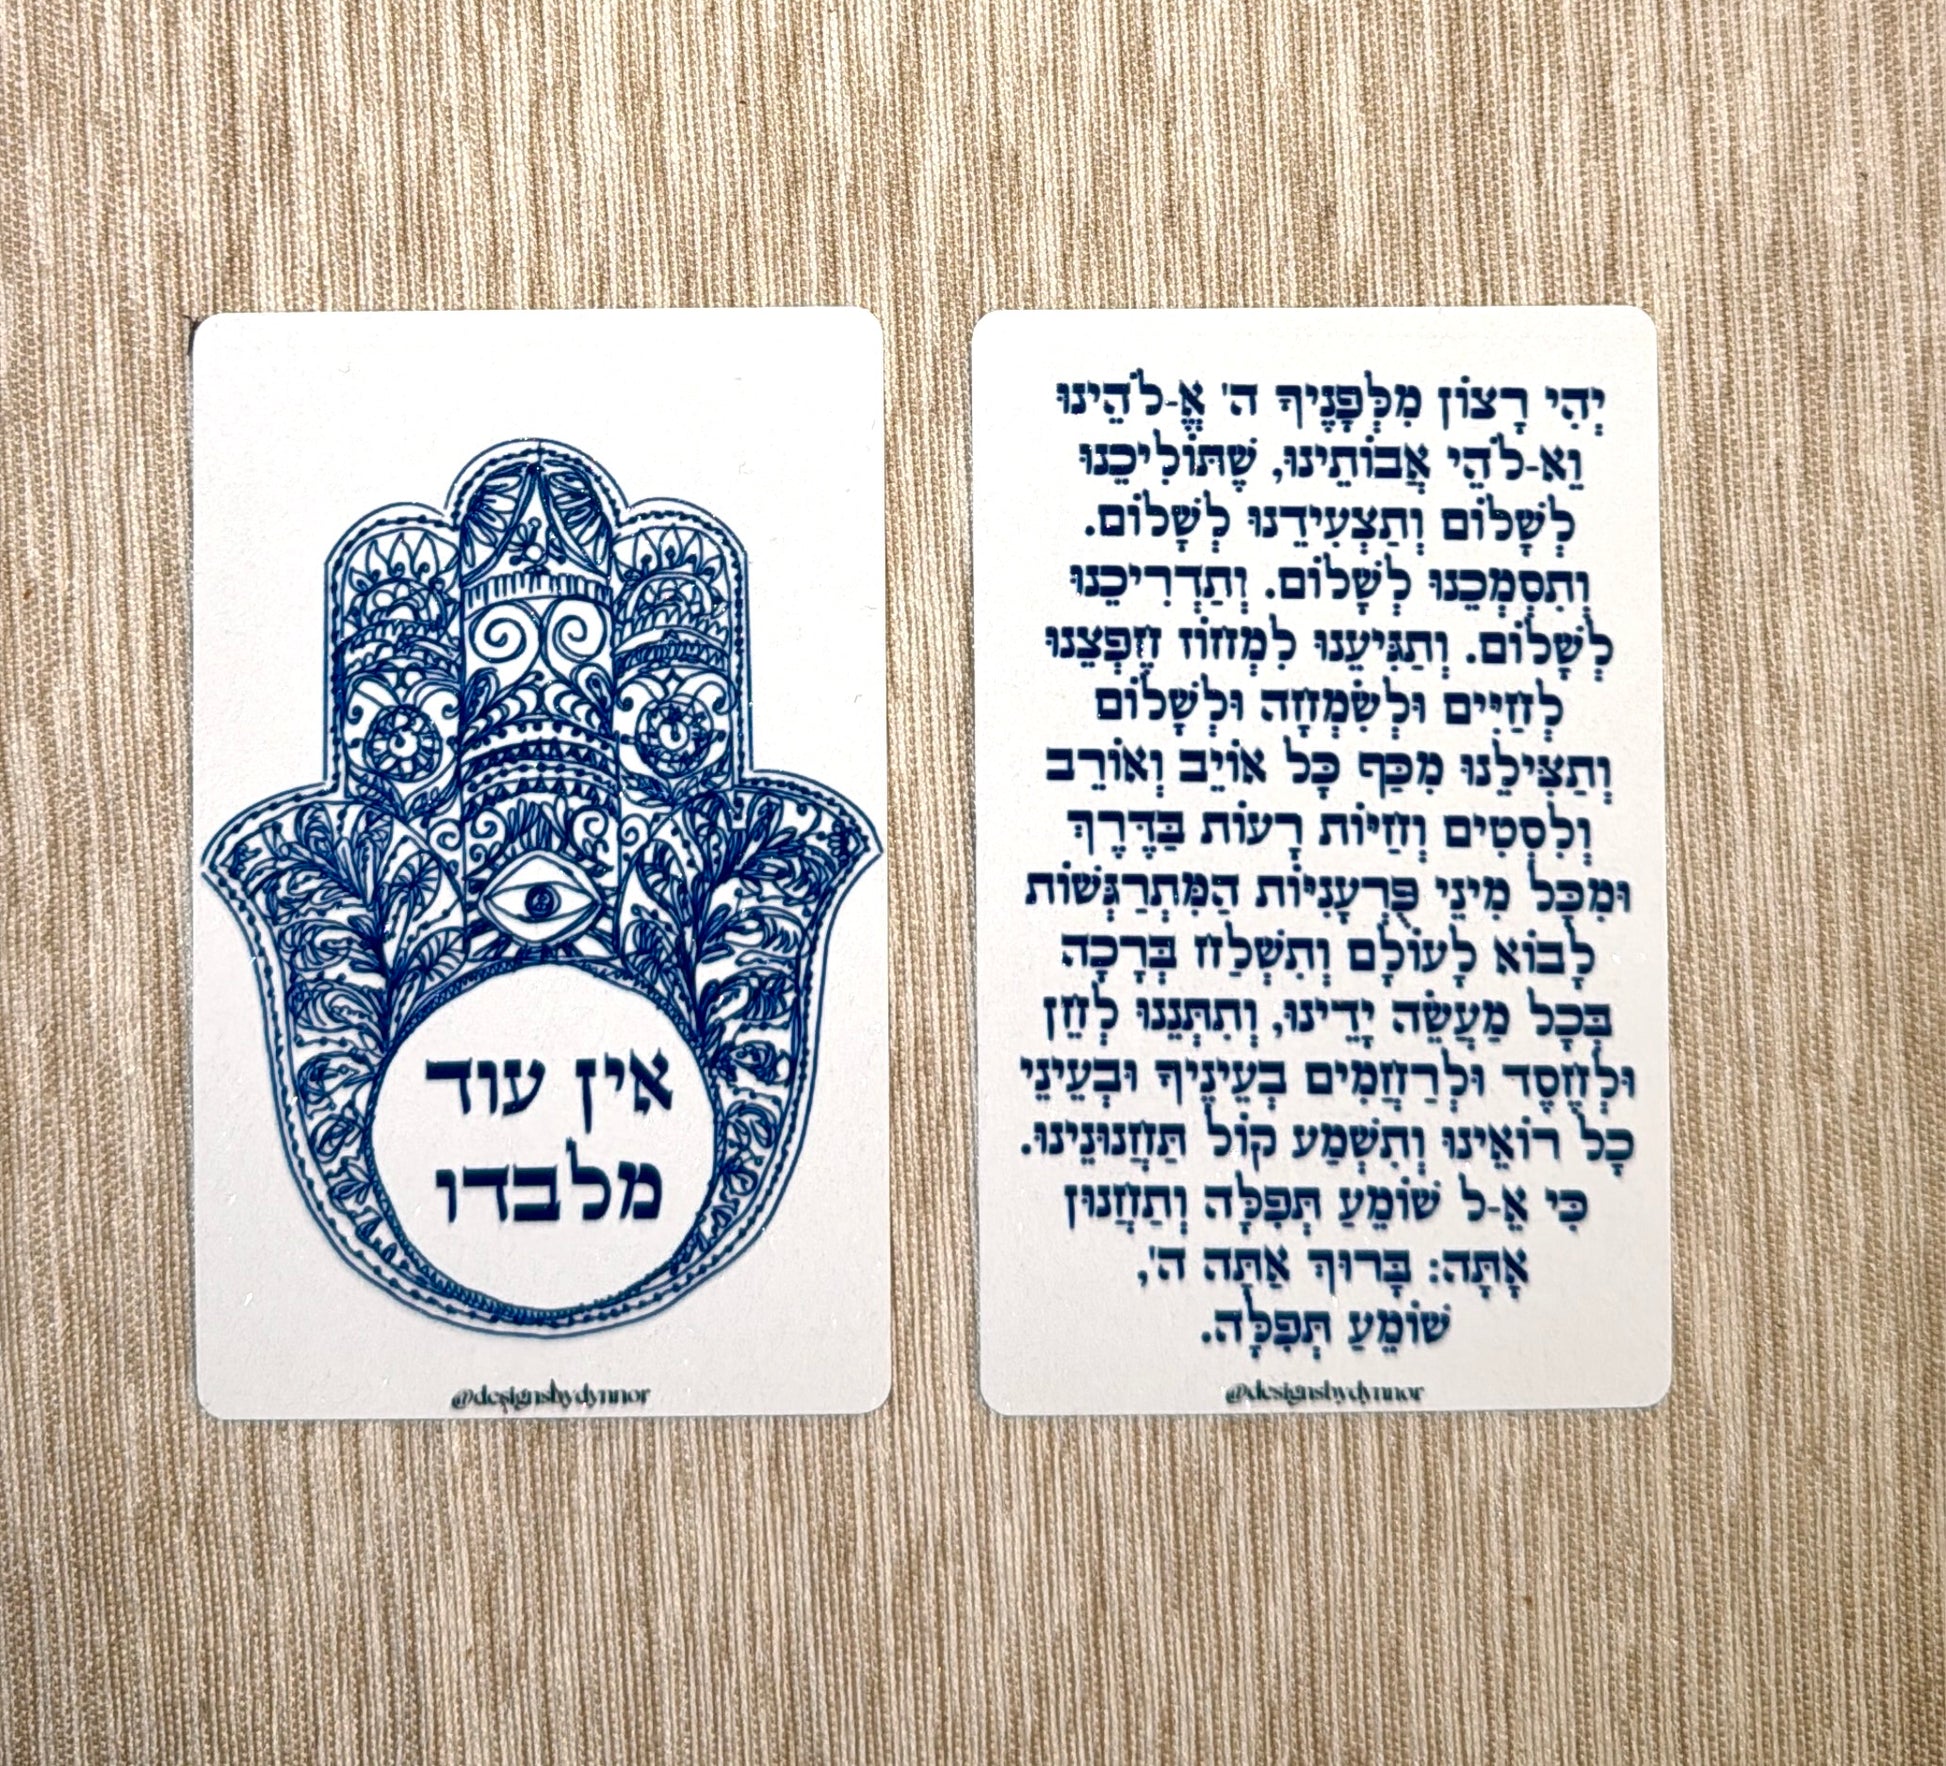 אין עוד
מלבדו
@designsbydynnor
יְהִי רָצוֹן מִלְּפָנֶיךָ ה' אֱ-לֹהֵינוּ
וֵא-לֹהֵי אֲבוֹתֵינוּ, שֶׁתּוֹלִיכֵנוּ
לְשָׁלוֹם וְתַצְעִידֵנוּ לְשָׁלוֹם.
וְתִסְמְכֵנוּ לְשָׁלוֹם. וְתַדְרִיכֵנוּ
לְשָׁלוֹם. וְתַגִּיעֵנוּ לִמְחוֹז חֶפְצֵנוּ
לְחַיִּים וּלְשִׂמְחָה וּלְשָׁלוֹם
וְתַצִּילֵנוּ מִכַּף כָּל אוֹיֵב וְאוֹרֵב
וְלִסְטִים וְחַיּוֹת רָעוֹת בַּדֶּרֶךְ
וּמִכָּל מִינֵי פֻּרְעָנִיּוֹת הַמִּתְרַגְּשׁוֹת
לָבוֹא לָעוֹלָם וְתִשְׁלַח בְּרָכָה
בְּכָל מַעֲשֵׂה יָדֵינוּ, וְתִתְּנֵנוּ לְחֵן
וּלְחֶסֶד וּלְרַחֲמִים בְּעֵינֶיךָ וּבְעֵינֵי
כָל רוֹאֵינוּ וְתִשְׁמַע קוֹל תַּחֲנוּנֵינוּ.
כִּי אֵ-ל שׁוֹמֵעַ תְּפִלָּה וְתַחֲנוּן
אָתָּה: בָּרוּךְ אַתָּה ה',
שׁוֹמֵעַ תְּפִלָּה.
@designsbydynnor